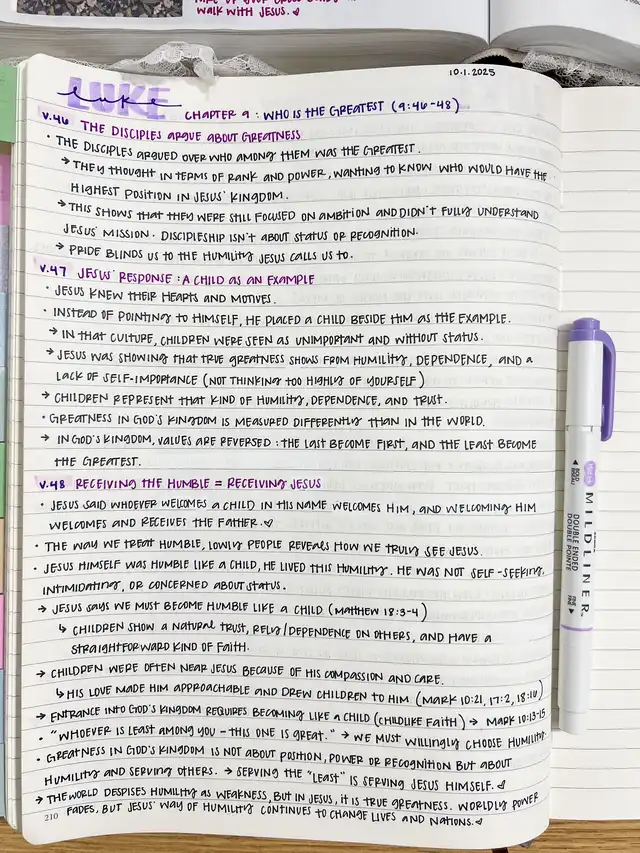 WALK WITH JESUS.
10.1.2025
LUKE
luke
CHAPTER 9 : WHO IS THE GREATEST (9:46-48)
V.46 THE DISCIPLES ARGUE ABOUT GREATNESS
• THE DISCIPLES ARGUED OVER WHO AMONG THEM WAS THE GREATEST.
→ THEY THOUGHT IN TERMS OF RANK AND POWER, WANTING TO KNOW WHO WOULD HAVE THE
HIGHEST POSITION IN JESUS' KINGDOM.
→ THIS SHOWS THAT THEY WERE STILL FOCUSED ON AMBITION AND DIDN'T FULLY UNDERSTAND
JESUS' MISSION. DISCIPLESHIP ISN'T ABOUT STATUS OR RECOGNITION.
→ PRIDE BLINDS US TO THE HUMILITY JESUS CALLS US TO.
V.47 JESUS' RESPONSE : A CHILD AS AN EXAMPLE
• JESUS KNEW THEIR HEARTS AND MOTIVES.
• INSTEAD OF POINTING TO HIMSELF, HE PLACED A CHILD BESIDE HIM AS THE EXAMPLE.
→ IN THAT CULTURE, CHILDREN WERE SEEN AS UNIMPORTANT AND WITHOUT STATUS.
→ JESUS WAS SHOWING THAT TRUE GREATNESS SHOWS FROM HUMILITY, DEPENDENCE, AND A
LACK OF SELF-IMPORTANCE (NOT THINKING TOO HIGHLY OF YOURSELF)
→ CHILDREN REPRESENT THAT KIND OF HUMILITY, DEPENDENCE, AND TRUST.
• GREATNESS IN GOD'S KINGDOM IS MEASURED DIFFERENTLY THAN IN THE WORLD.
→ IN GOD'S KINGDOM, VALUES ARE REVERSED : THE LAST BECOME FIRST, AND THE LEAST BECOME
THE GREATEST.
V.48 RECEIVING THE HUMBLE = RECEIVING JESUS
• JESUS SAID WHOEVER WELCOMES A CHILD IN HIS NAME WELCOMES HIM, AND WELCOMING HIM
WELCOMES AND RECEIVES THE FATHER. ♡
• THE WAY WE TREAT HUMBLE, LOWLY PEOPLE REVEALS HOW WE TRULY SEE JESUS.
• JESUS HIMSELF WAS HUMBLE LIKE A CHILD, HE LIVED THIS HUMILITY. HE WAS NOT SELF-SEEKING,
INTIMIDATING, OR CONCERNED ABOUT STATUS.
→ JESUS SAYS WE MUST BECOME HUMBLE LIKE A CHILD (MATTHEW 18:3-4)
↳ CHILDREN SHOW A NATURAL TRUST, RELY/DEPENDENCE ON OTHERS, AND HAVE A
STRAIGHTFORWARD KIND OF FAITH.
→ CHILDREN WERE OFTEN NEAR JESUS BECAUSE OF HIS COMPASSION AND CARE.
↳ HIS LOVE MADE HIM APPROACHABLE AND DREW CHILDREN TO HIM (MARK 10:21, 17:2, 18:16)
→ ENTRANCE INTO GOD'S KINGDOM REQUIRES BECOMING LIKE A CHILD (CHILDLIKE FAITH) → MARK 10:13-15
• "WHOEVER IS LEAST AMONG YOU - THIS ONE IS GREAT." → WE MUST WILLINGLY CHOOSE HUMILITY.
• GREATNESS IN GOD'S KINGDOM IS NOT ABOUT POSITION, POWER OR RECOGNITION BUT ABOUT
HUMILITY AND SERVING OTHERS. → SERVING THE "LEAST" IS SERVING JESUS HIMSELF. ♡
→ THE WORLD DESPISES HUMILITY AS WEAKNESS, BUT IN JESUS, IT IS TRUE GREATNESS. WORLDLY POWER
FADES, BUT JESUS' WAY OF HUMILITY CONTINUES TO CHANGE LIVES AND NATIONS. ♡
210
MILDLINER
DOUBLE ENDED
DOUBLE POINTE